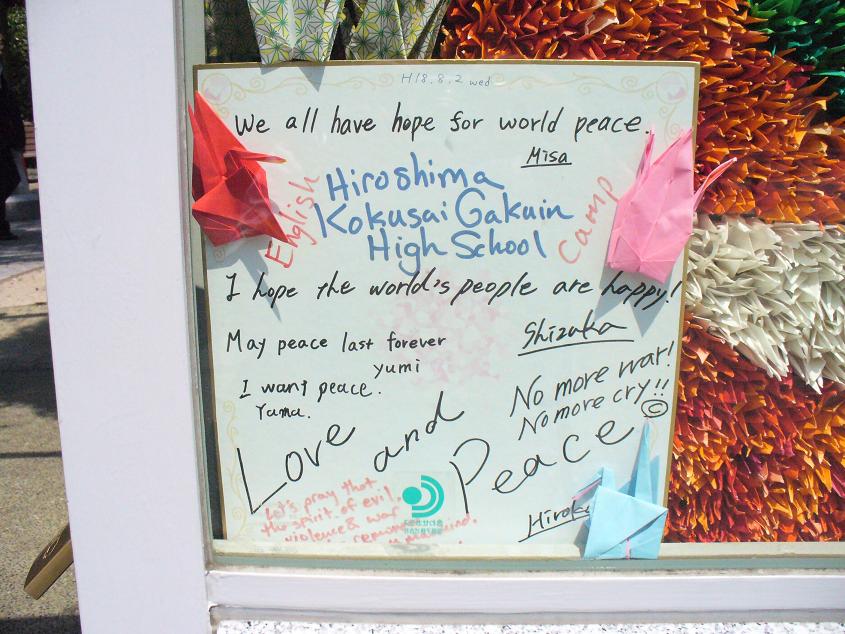 H18.8.2 wed
We all have hope for world peace.
Misa
English
Hiroshima
Kokusai Gakuin
High School
Camp
I hope the world's people are happy!
Shizuka
May peace last forever
yumi
I want peace.
Yama.
No more war!
No more cry!!
©
Love and Peace
Let's pray that
the spirit of evil,
violence & war